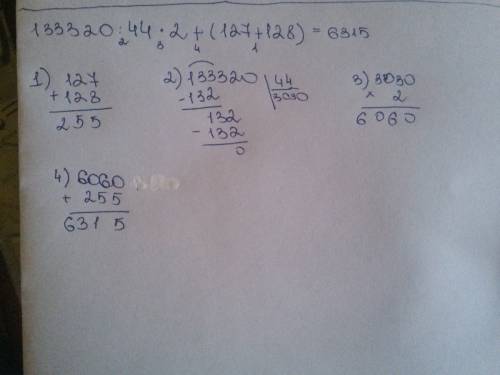 133320:44·2+(127+128)=6315
2 3 4 1
1) 127 2) 133320 44 3) 3030
+128 -132 3030 × 2
255 132 6060
-132
0
4) 6060
+ 255
6315